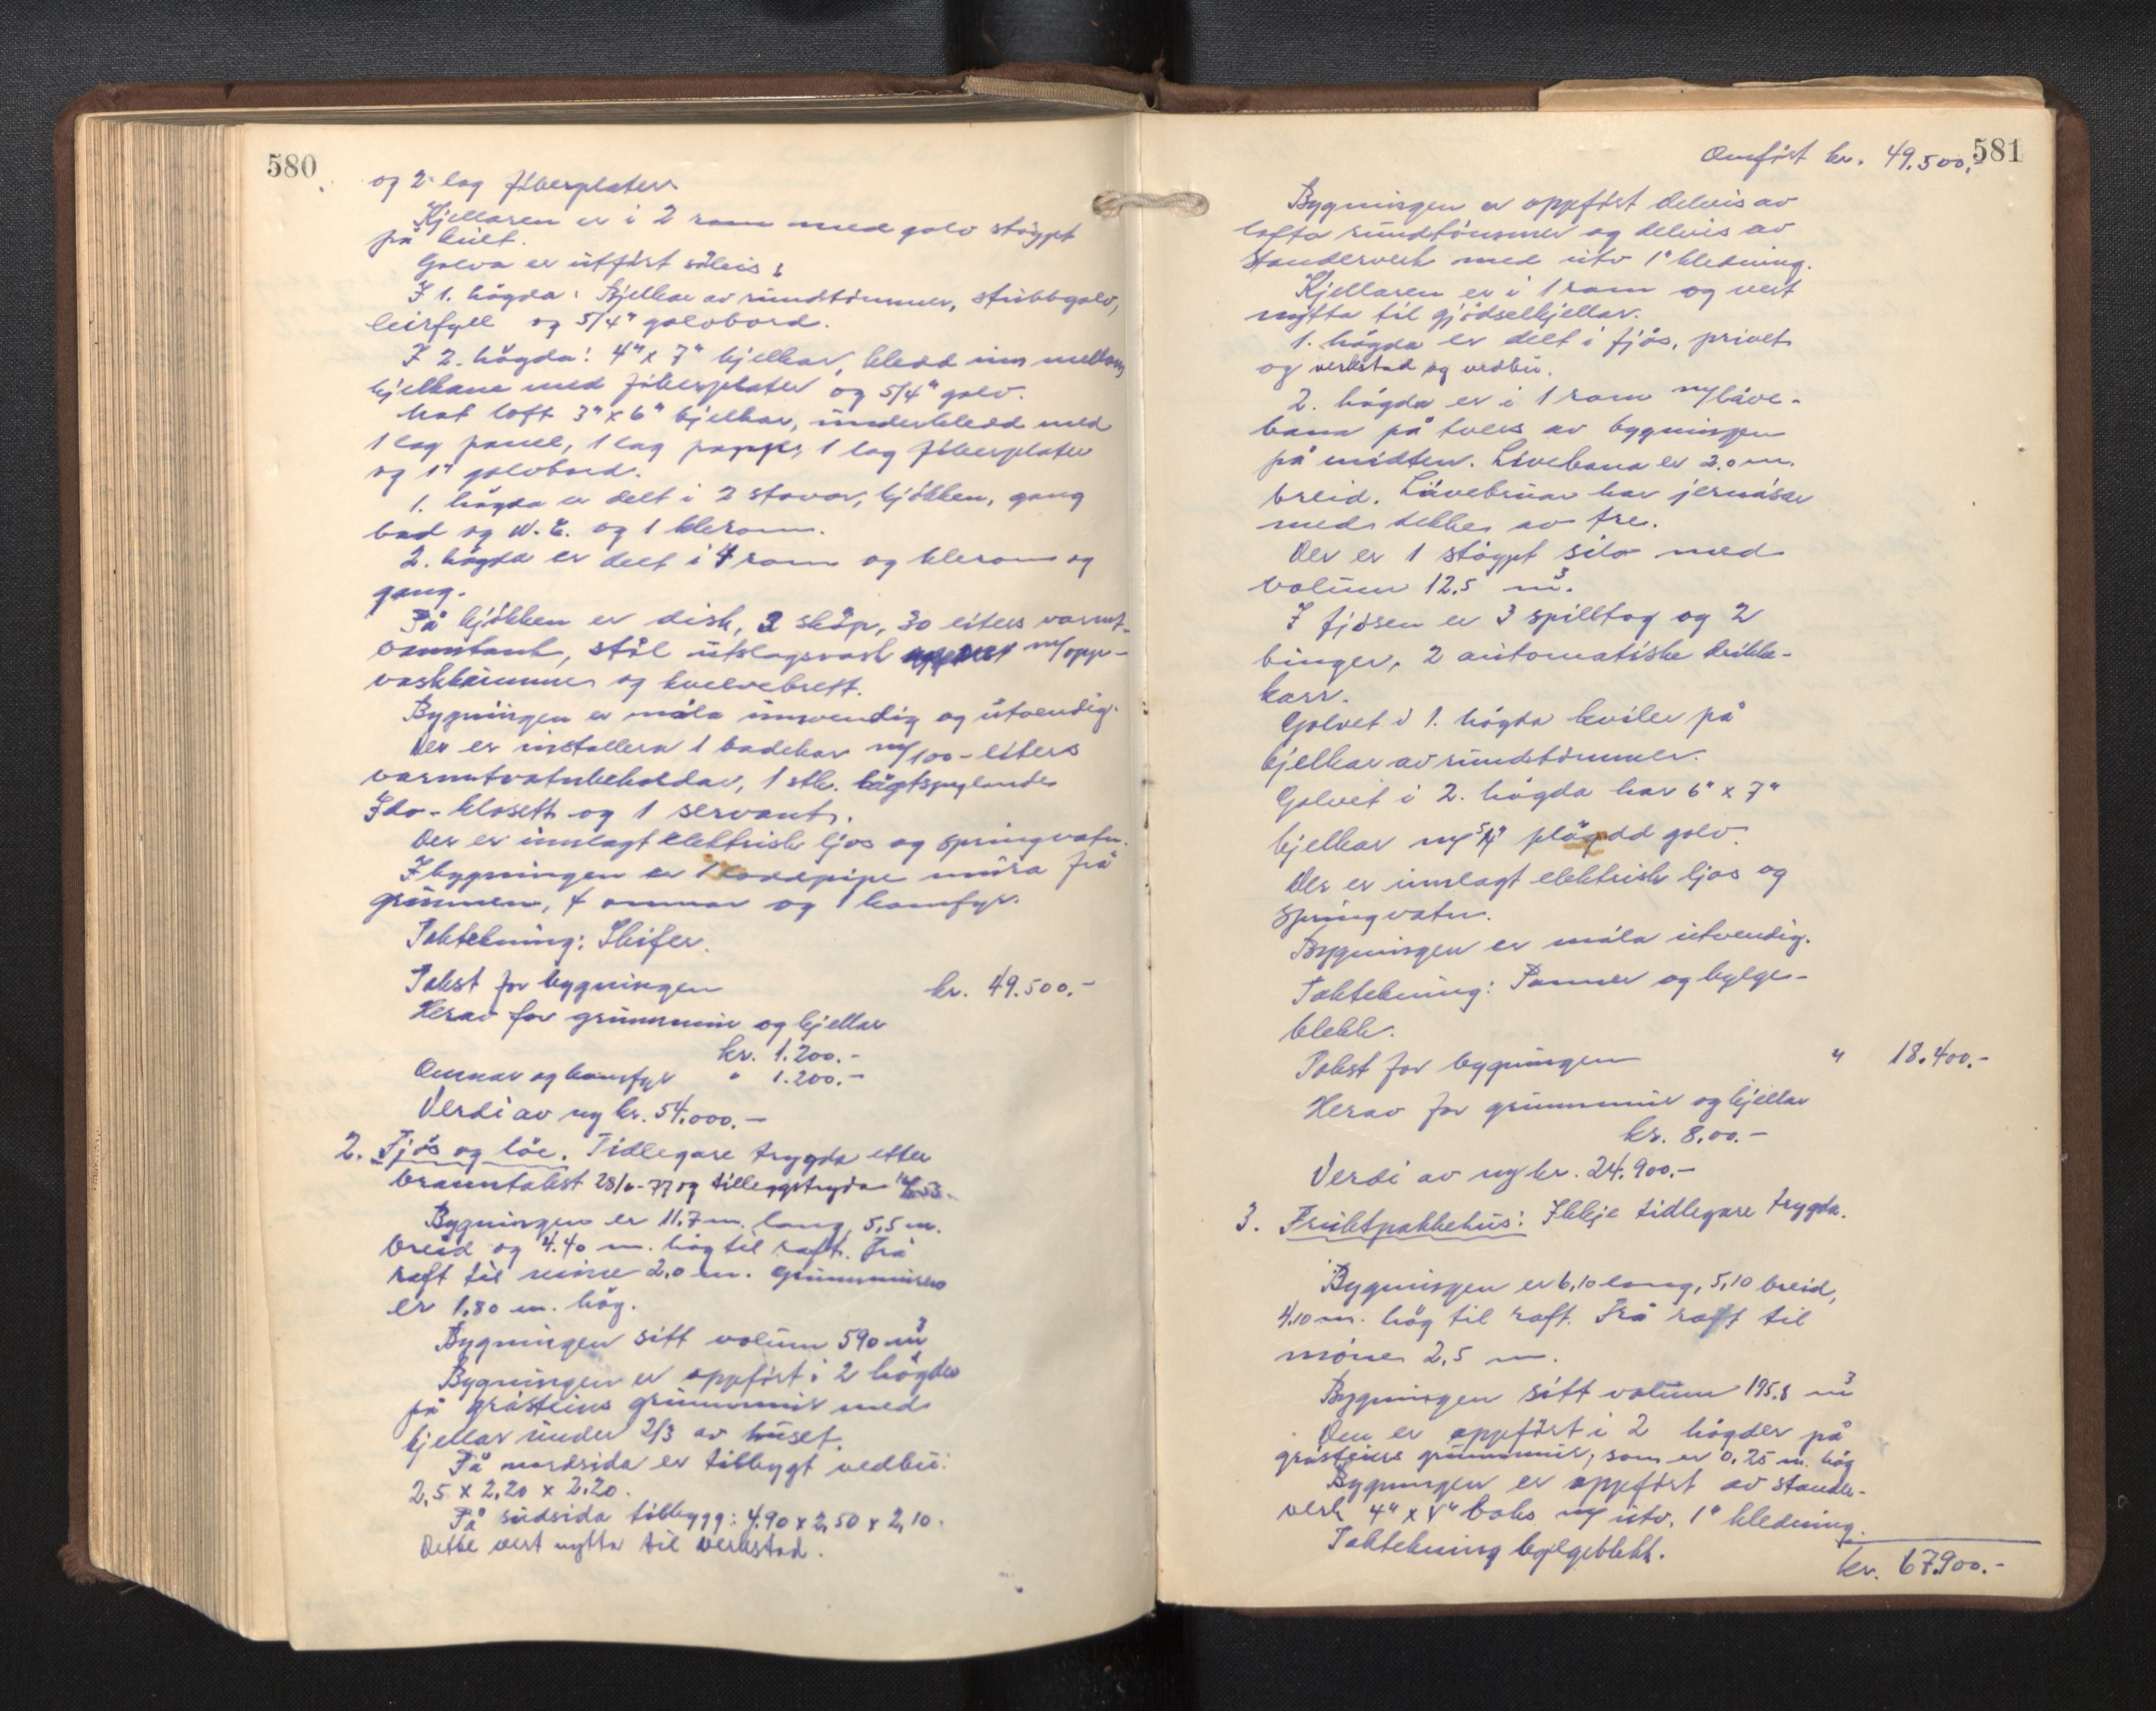 580
og 2 lag fiberplater
Kjellaren er i 2 rom med golv støypt
på kult.
Golva er utført såleis:
I 1. høgda: Bjelkar av rundtømmer, stubbgolv,
leirfyll og 5/4" golvbord.
I 2. høgda: 4" x 7" bjelkar, kledd inn mellom
bjelkane med fiberplater og 5/4" golv.
Mot loft 3" x 6" bjelkar, underkledd med
1 lag panel, 1 lag papp, 1 lag fiberplater
og 1" golvbord.
1. høgda er delt i 2 stovor, kjøkken, gang
bad og W.C. og 1 klerom.
2. høgda er delt i 4 rom og klerom og
gang.
På kjøkken er disk, 3 skåp, 30 liters varmt-
vanntank, stål utslagsvask m/opp-
vaskkummer og kvelvebrett.
Bygningen er måla innvendig og utvendig.
Der er installera 1 badekar m/100-liters
varmtvatnbehaldar, 1 stk. lågtspylande
Ido-klosett og 1 servant.
Der er innlagt elektrisk ljos og springvatn.
I bygningen er 1 loddpipe mura frå
grunnen, 4 omnar og 1 komfyr.
Taktekning: Skifer.
Takst for bygningen kr. 49.500.-
Herav for grunnmur og kjellar
kr. 1.200.-
Omnar og komfyr " 1.200.-
Verdi av ny kr. 54.000.-
2. Fjøs og löe. Tidlegare trygda etter
branntakst 28/6-77 og tilleggstrygda
Bygningen er 11,7 m. lang, 5,5 m.
breid og 4.40 m. høg til raft. Frå
raft til møne 2,0 m. Grunnmuren
er 1,80 m. høg.
Bygningen sitt volum 590 m³
Bygningen er oppført i 2 høgder
på gråsteins grunnmur med
kjellar under 2/3 av huset.
På nordsida er tilbygt vedbu:
2,5 x 2,20 x 2,20.
På sudsida tilbygg: 4.90 x 2,50 x 2,10.
Dette vert nytta til verkstad.
581
Omført kr. 49.500,-
Bygningen er oppført delvis av
lafta rundtømmer og delvis av
standerverk med utv 1" kledning.
Kjellaren er i 1 rom og vert
nytta til gjødselkjellar.
1. høgda er delt i fjøs, privet
og verkstad og vedbu.
2. høgda er i 1 rom m/låve-
bana på tvers av bygningen
på midten. Låvebana er 2.0 m.
breid. Låvebruar har jernåsar
med dekke av tre.
Der er 1 støypt silo med
volum 12.5 m³.
I fjøsen er 3 spilltog og 2
binger, 2 automatiske drikke-
karr.
Golvet i 1. høgda kviler på
bjelkar av rundtømmer.
Golvet i 2. høgda har 6" x 7"
bjelkar m/ 5/4" pløgdd golv.
Der er innlagt elektrisk ljos og
springvatn.
Bygningen er måla utvendig.
Taktekning: Panner og bylgje-
blekk.
Takst for bygningen " 18.400.-
Herav for grunnmur og kjellar
kr. 8,00.-
Verdi av ny kr. 24.900.-
3. Fruktpakkehus: Ikkje tidlegare trygda.
Bygningen er 6,10 lang, 5,10 breid,
4.10 m. høg til raft. Frå raft til
møne 2,5 m.
Bygningen sitt volum 195.8 m³
Den er oppført i 2 høgder på
gråsteins grunnmur, som er 0,25 m. høg
Bygningen er oppført av stander-
verk 4" x 4" boks m/ utv. 1" kledning.
Taktekning bylgjeblekk.
kr. 67.900.-